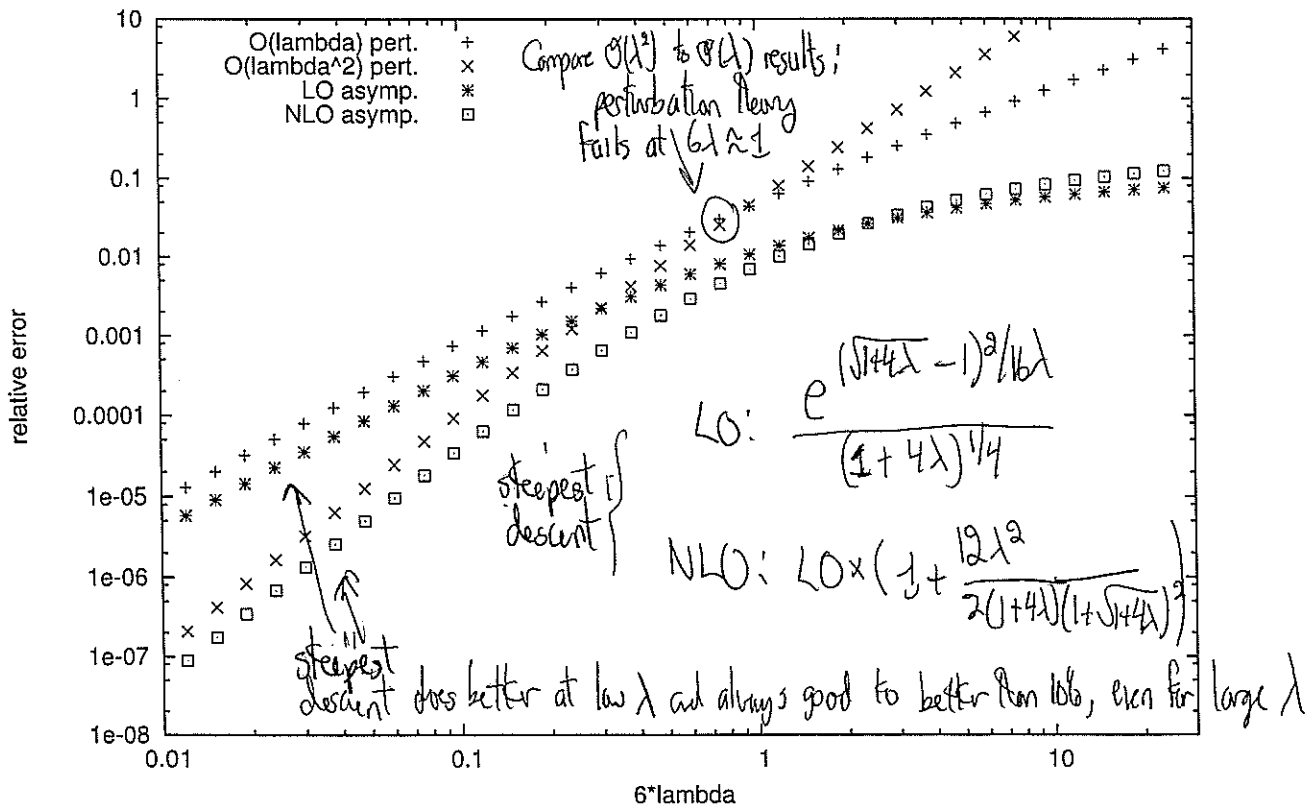 10
1
0.1
0.01
0.001
0.0001
1e-05
1e-06
1e-07
1e-08
relative error
O(lambda) pert. +
O(lambda^2) pert. ×
LO asymp. ∗
NLO asymp. ⊡
Compare O(λ²) to O(λ) results;
perturbation theory
fails at 6λ ≈ 1
LO: e^{(√(1+4λ) - 1)²/16λ} / (1 + 4λ)^{1/4}
"steepest
descent" {
NLO: LO × (1 + 12λ² / 2(1+4λ)(1+√(1+4λ))²)
"steepest
descent" does better at low λ and always good to better than 10%, even for large λ
0.01 0.1 1 10
6*lambda